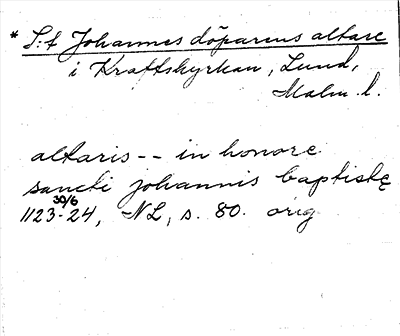 * S:t Johannes döparens altare
i Kraftskyrkan, Lund,
Malm. l.
altaris -- in honore
sancti johannis baptistę
1123 30/6 - 24, NL, s. 80. orig